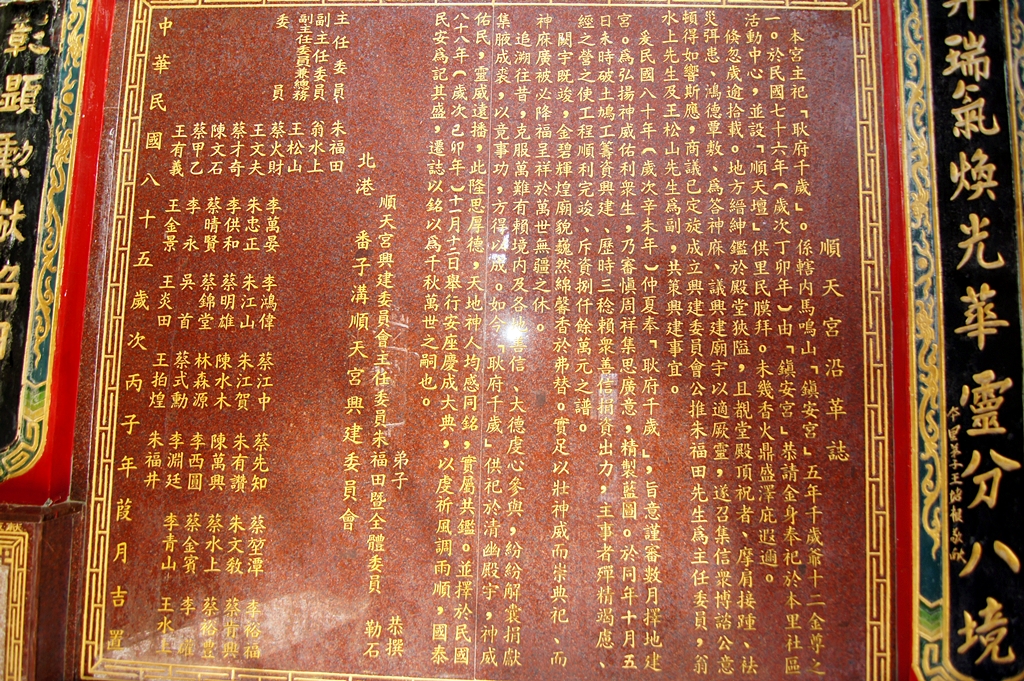 昇瑞氣煥光華靈分八境
順天宮沿革誌
本宮主祀「耿府千歲」。係轄內馬鳴山「鎮安宮」五年千歲爺十二金尊之
一。於民國七十六年(歲次丁卯年)由「鎮安宮」恭請金身奉祀於本里社區
活動中心，並設「順天壇」供里民膜拜。未幾香火鼎盛澤庇遐邇。
倏忽歲逾拾載。地方縉紳鑑於殿堂狹隘，且覯堂殿頂祝者、摩肩接踵、祛
災弭患、鴻德覃敷、為答神庥、議興建廟宇以適厥靈，遂召集信眾博諮公意
頓得如響斯應，商議已定旋成立興建委員會公推朱福田先生為主任委員，翁
水上先生及王松山先生為副，共策興建事宜。
爰民國八十年(歲次辛未年)仲夏奉「耿府千歲」，旨意謹審數月擇地建
宮。為弘揚神威佑利眾生，乃審慎周祥集思廣意，精製藍圖。於同年十月五
日永時破土鳩工籌資興建、歷時三稔賴眾善信捐資出力，主事者殫精竭慮、
經之營之使工程順利完竣、斥資捌仟餘萬元之譜。
闕宇既竣，金碧輝煌廟貌巍然綿馨香於弗替。實足以壯神威而崇典祀、而
神庥廣被必降福呈祥於萬世無疆之休。
追溯往昔，克服萬難有賴境內及各地善信、大德虔心參與，紛紛解囊捐獻
集腋成裘，以竟事功，方得以成。如今「耿府千歲」供祀於清幽殿宇，神威
佑民，靈威遠播，此隆恩厚德，天地神人均感同銘，實屬共鑑。並擇於民國
八十八年(歲次己卯年)十一月十二日舉行安座慶成大典，以虔祈風調雨順，國泰
民安為記其盛，遷誌以銘以為千秋萬世之嗣也。
順天宮興建委員會主任委員朱福田暨全體委員 恭撰
弟子 勒石
北港番子溝順天宮興建委員會
主任委員：朱福田
副主任委員 翁水上
副主任委員兼總務 王松山
委員 蔡火財 李萬晏 李鴻偉 蔡江中 蔡先知 蔡堃潭 李裕福
王文夫 朱忠正 朱江山 朱江賀 朱有讚 朱文教 蔡有興
蔡才奇 李供和 蔡明雄 陳水木 陳萬興 蔡水上 蔡裕豐
陳文石 蔡晴賢 蔡錦堂 林森源 李西圓 蔡金賓 李權
蔡甲乙 李永 吳首 蔡式勳 李淵廷 李青山 王水上
王有義 王金景 王炎田 王拍煌 朱福井
中華民國八十五歲次丙子年葭月吉置
彰顯勳猷昭